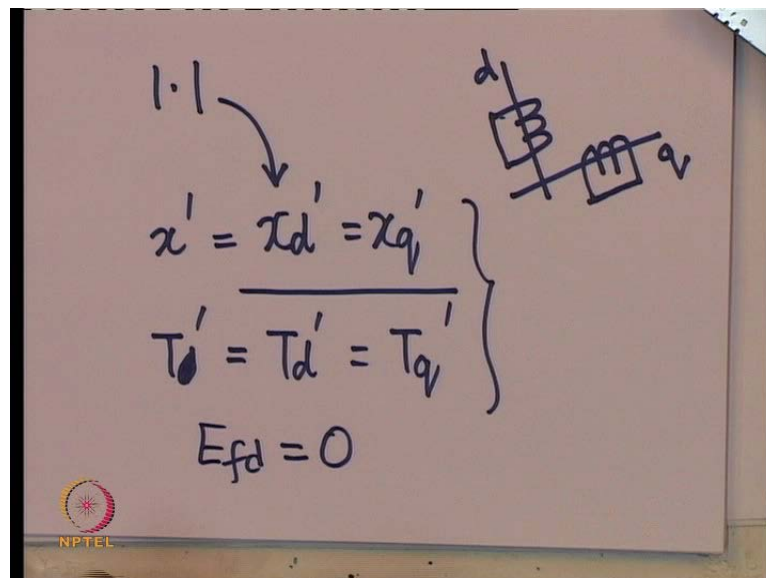 1.1
d
q
x' = xd' = xq'
T' = Td' = Tq'
Efd = 0
NPTEL